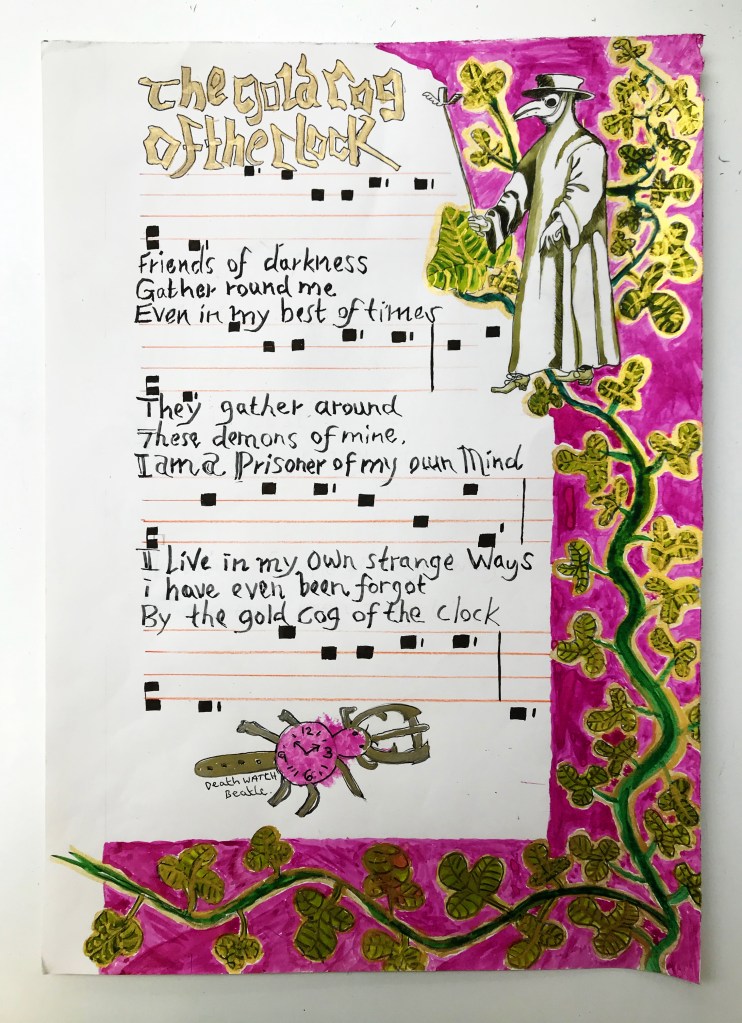 The gold Cog
of the clock
Friends of darkness
Gather round me
Even in my best of times
They gather around
These demons of mine.
I am a Prisoner of my own Mind
I Live in my own strange Ways
i have even been forgot
By the gold cog of the clock
12
9 3
6
Death WATCH
Beatle.